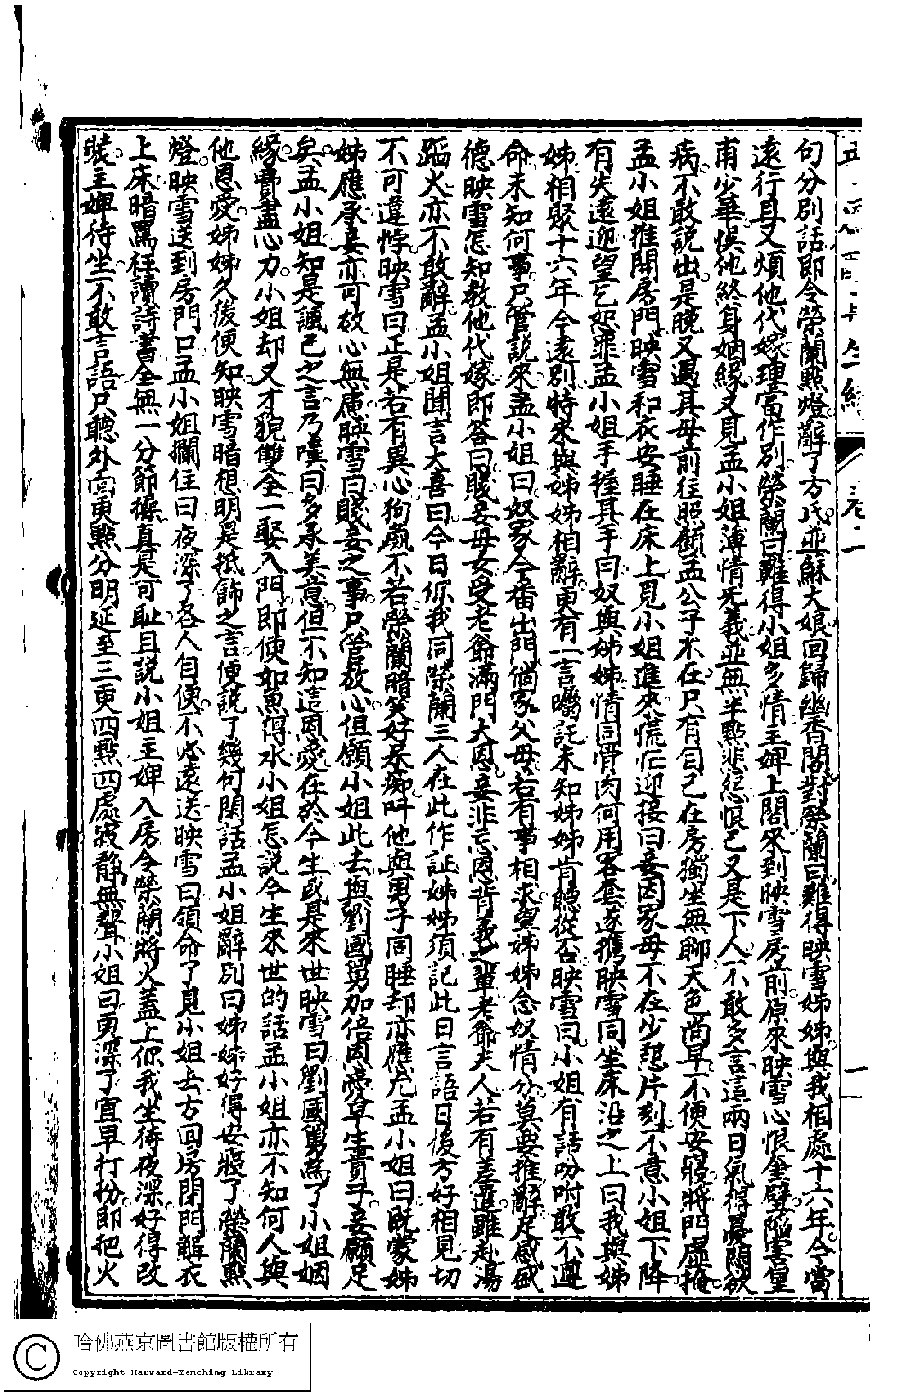 句分別話即令榮蘭點燈辭了方氏並蘇大娘回歸幽香閣對榮蘭曰難得映雪姊姊與我相處十六年今當
遠行且又煩他代嫁理當作別榮蘭曰難得小姐多情主婢上閣來到映雪房前原來映雪心恨奎璧陷害皇
甫少華悞他終身姻緣又見孟小姐薄情無義並無半點悲怨恨己又是下人不敢多言這兩日氣得憂悶欲
病不敢說出是晚又遇其母前往照顧孟公子不在只有自己在房獨坐無聊天色尚早不便安寢將門虛掩
孟小姐推開房門映雪和衣安睡在床上見小姐進來慌忙迎接曰妾因家母不在少憩片刻不意小姐下降
有失遠迎望乞恕罪孟小姐手握其手曰奴與姊姊情同骨肉何用客套遂攜映雪同坐床沿之上曰我與姊
姊相聚十六年今遠別特來與姊姊相辭更有一言囑託未知姊姊肯聽從否映雪曰小姐有話吩咐敢不遵
命未知何事只管說來孟小姐曰奴家今番出門倘家父母若有事相求望姊姊念奴情分莫要推辭足感盛
德映雪怎知教他代嫁即答曰賤妾母女受老爺滿門大恩妾非忘恩背義之輩老爺夫人若有差遣雖赴湯
蹈火亦不敢辭孟小姐聞言大喜曰今日你我同榮蘭三人在此作証姊姊須記此日言語日後方好相見切
不可違悖映雪曰正是若有異心狗彘不若榮蘭暗笑好呆痴叫他與男子同睡却亦應允孟小姐曰既蒙姊
姊應承妾亦可放心無慮映雪曰賤妾之事只管放心但願小姐此去與劉國舅加倍恩愛早生貴子妾願足
矣孟小姐知是諷己之言乃嘆曰多承美意但不知這恩愛在於今生或是來世映雪曰劉國舅爲了小姐姻
緣費盡心力小姐却又才貌雙全一娶入門即便如魚得水小姐怎說今生來世的話孟小姐亦不知何人與
他恩愛姊姊久後便知映雪暗想明是抵飾之言便說了幾句閒話孟小姐辭別曰姊姊好得安寢了榮蘭點
燈映雪送到房門口孟小姐攔住曰夜深了各人自便不必遠送映雪曰領命了見小姐去方回房閉門解衣
上床暗罵枉讀詩書全無一分節操真是可恥且說小姐主婢入房令榮蘭將火蓋上你我坐待夜深好得改
裝主婢待坐不敢言語只聽外面更點分明延至三更四點四處寂靜無聲小姐曰更深了宜早打扮即把火
哈佛燕京圖書館版權所有
Copyright Harvard-Yenching Library